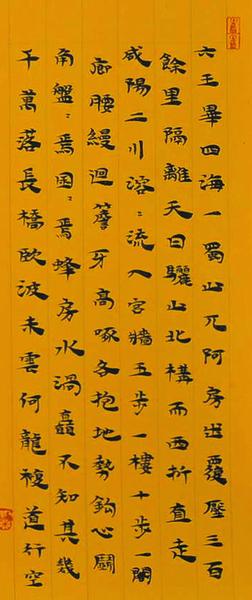 六王畢四海一蜀山兀阿房出覆壓三百
餘里隔離天日驪山北構而西折直走
咸陽二川溶〻流入宮牆五步一樓十步一閣
廊腰縵迴簷牙高啄各抱地勢鈎心鬭
角盤〻焉囷〻焉蜂房水渦矗不知其幾
千萬落長橋臥波未雲何龍複道行空